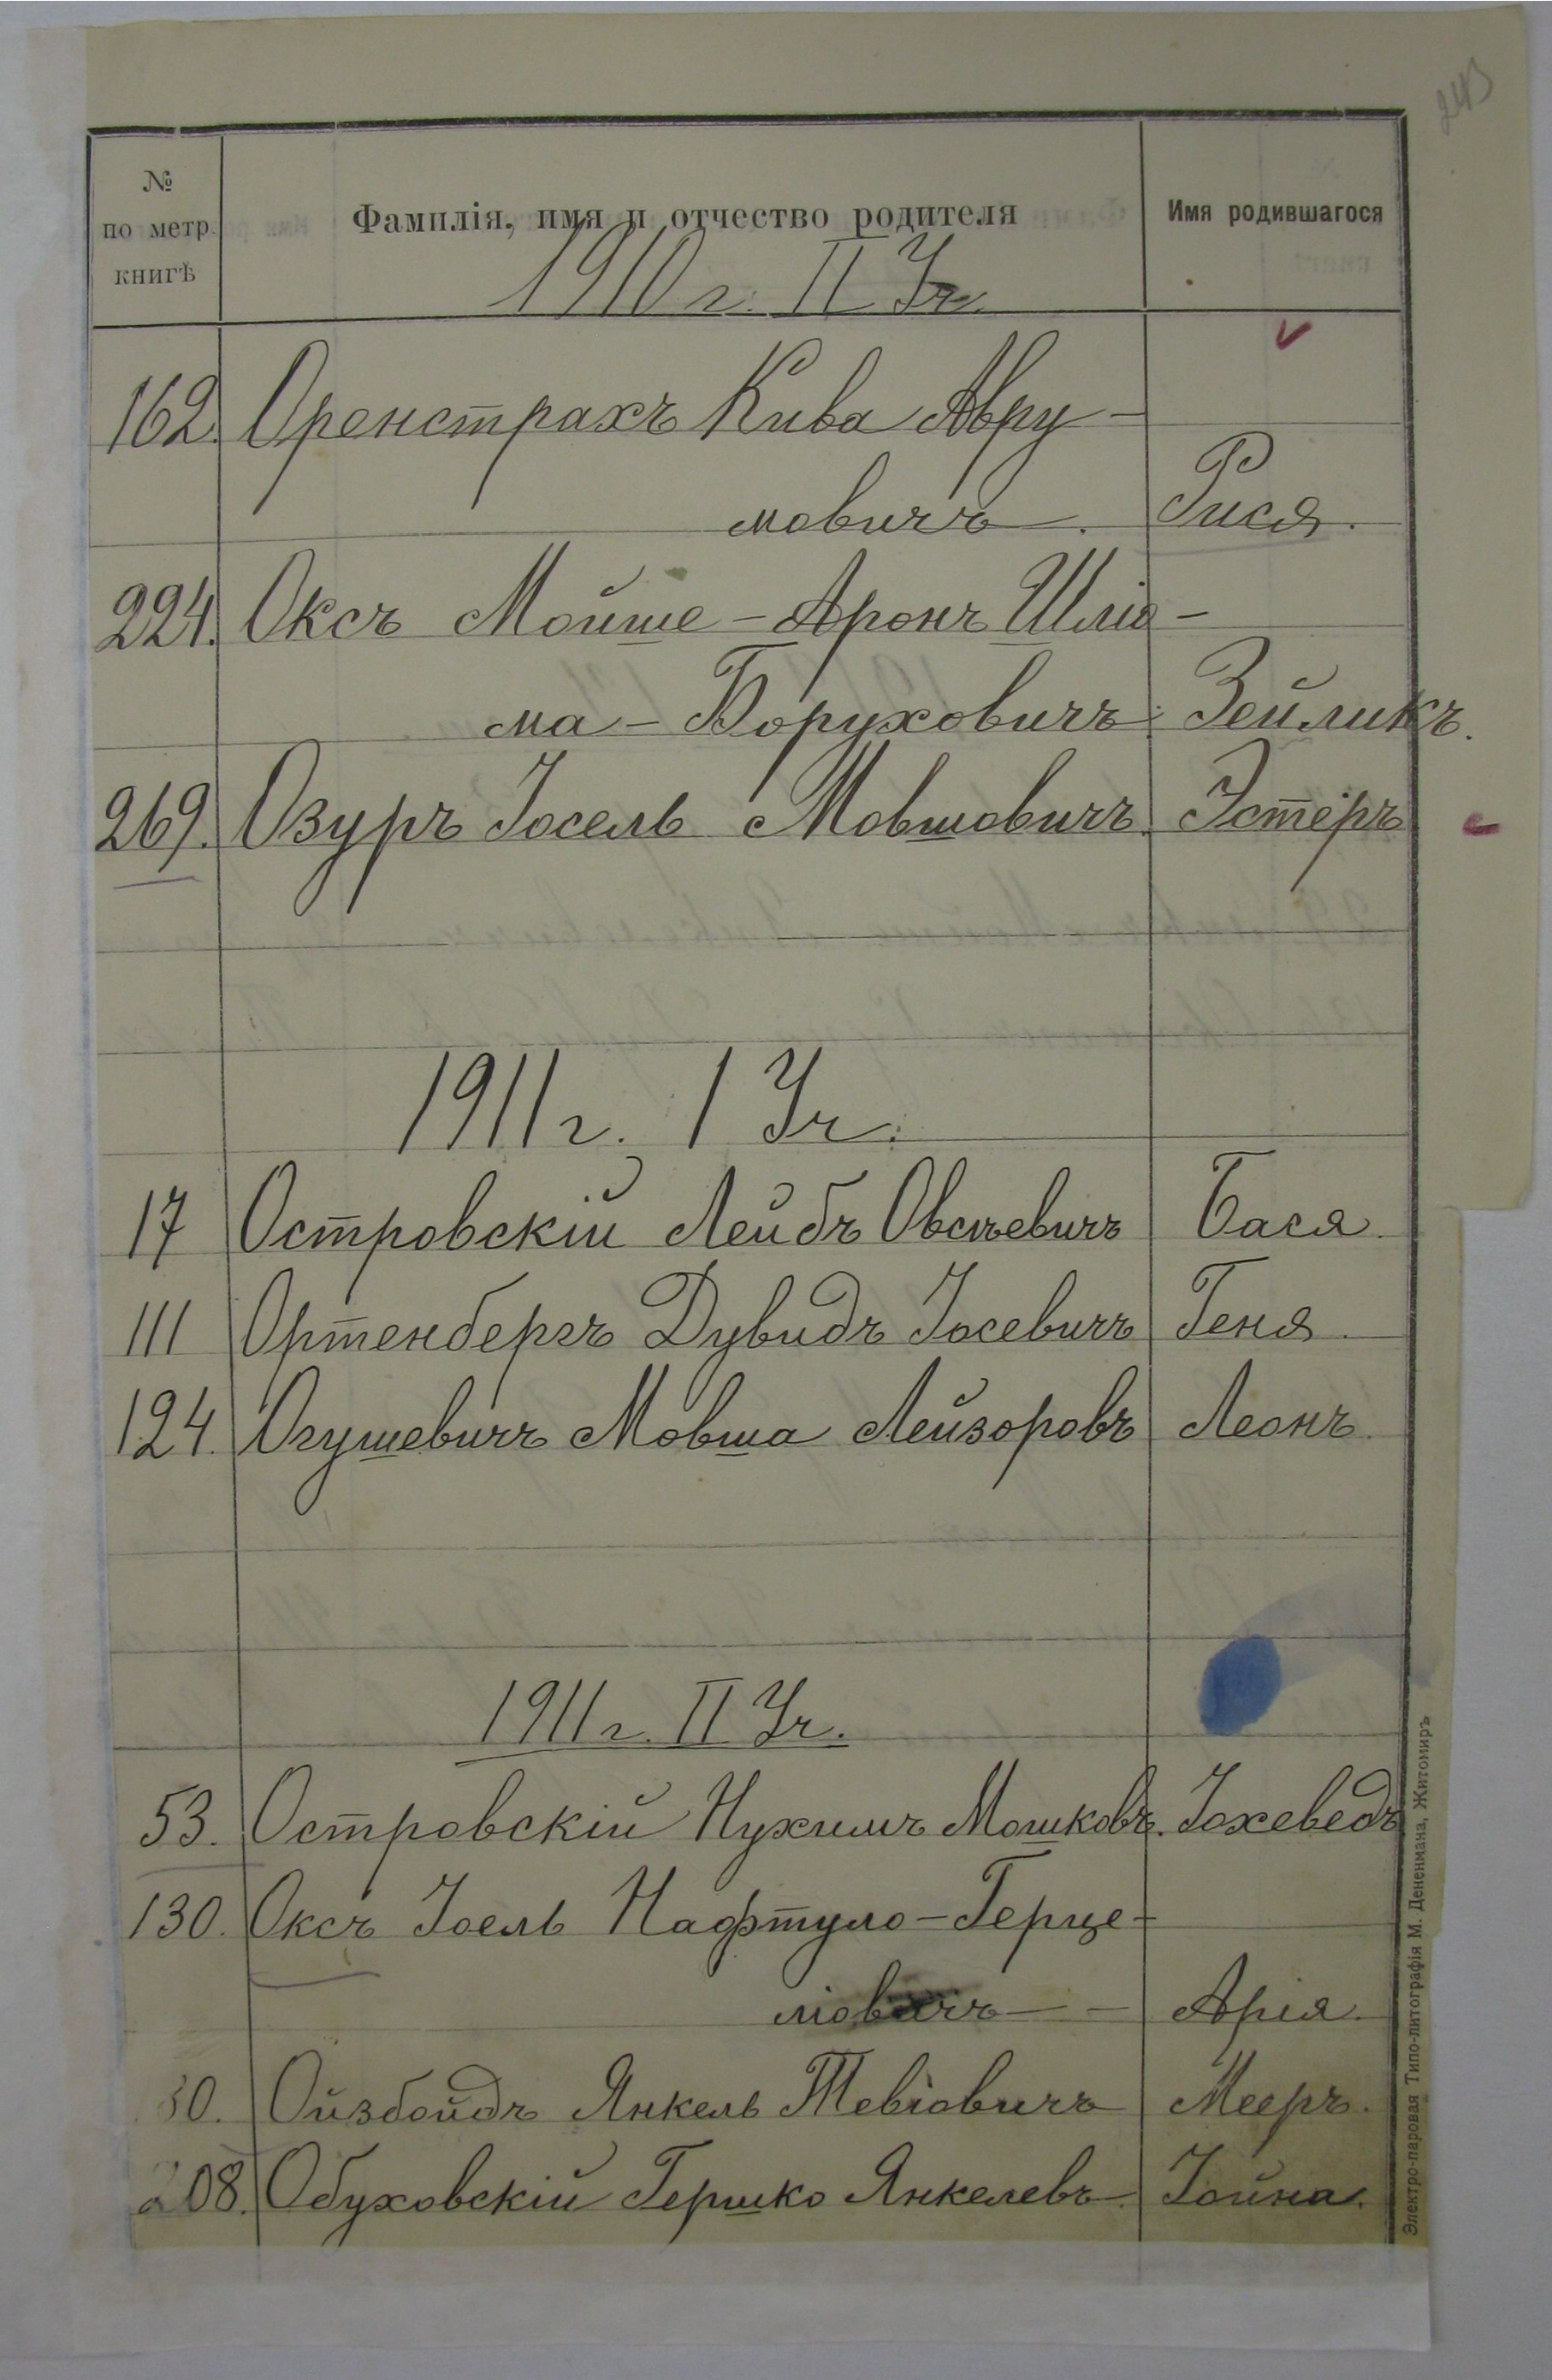 243
№ по метр. книгѣ
Фамилія, имя и отчество родителя
Имя родившагося
1910 г. II Уч.
162. Оренстрахъ Кива Авру-
мовичъ. Рися.
224. Оксъ Мойше-Аронъ Шліо-
ма-Боруховичъ. Зейликъ.
269. Озуръ Іосель Мовшовичъ. Эстеръ
1911 г. I Уч.
17 Островскій Лейбъ Овсѣевичъ Бася.
111 Ортенбергъ Дувидъ Іосевичъ Геня.
124. Огушевичъ Мовша Лейзоровъ Леонъ.
1911 г. II Уч.
53. Островскій Нухимъ Мошковъ. Іохеведъ
130. Оксъ Іоель Нафтуло-Герце-
ліовичъ — Арія.
Ойзбойдъ Янкель Тевіовичъ Мееръ.
208. Обуховскій Гершко Янкелевъ. Іойна.
Электро-паровая Типо-литографія М. Дененмана, Житомиръ